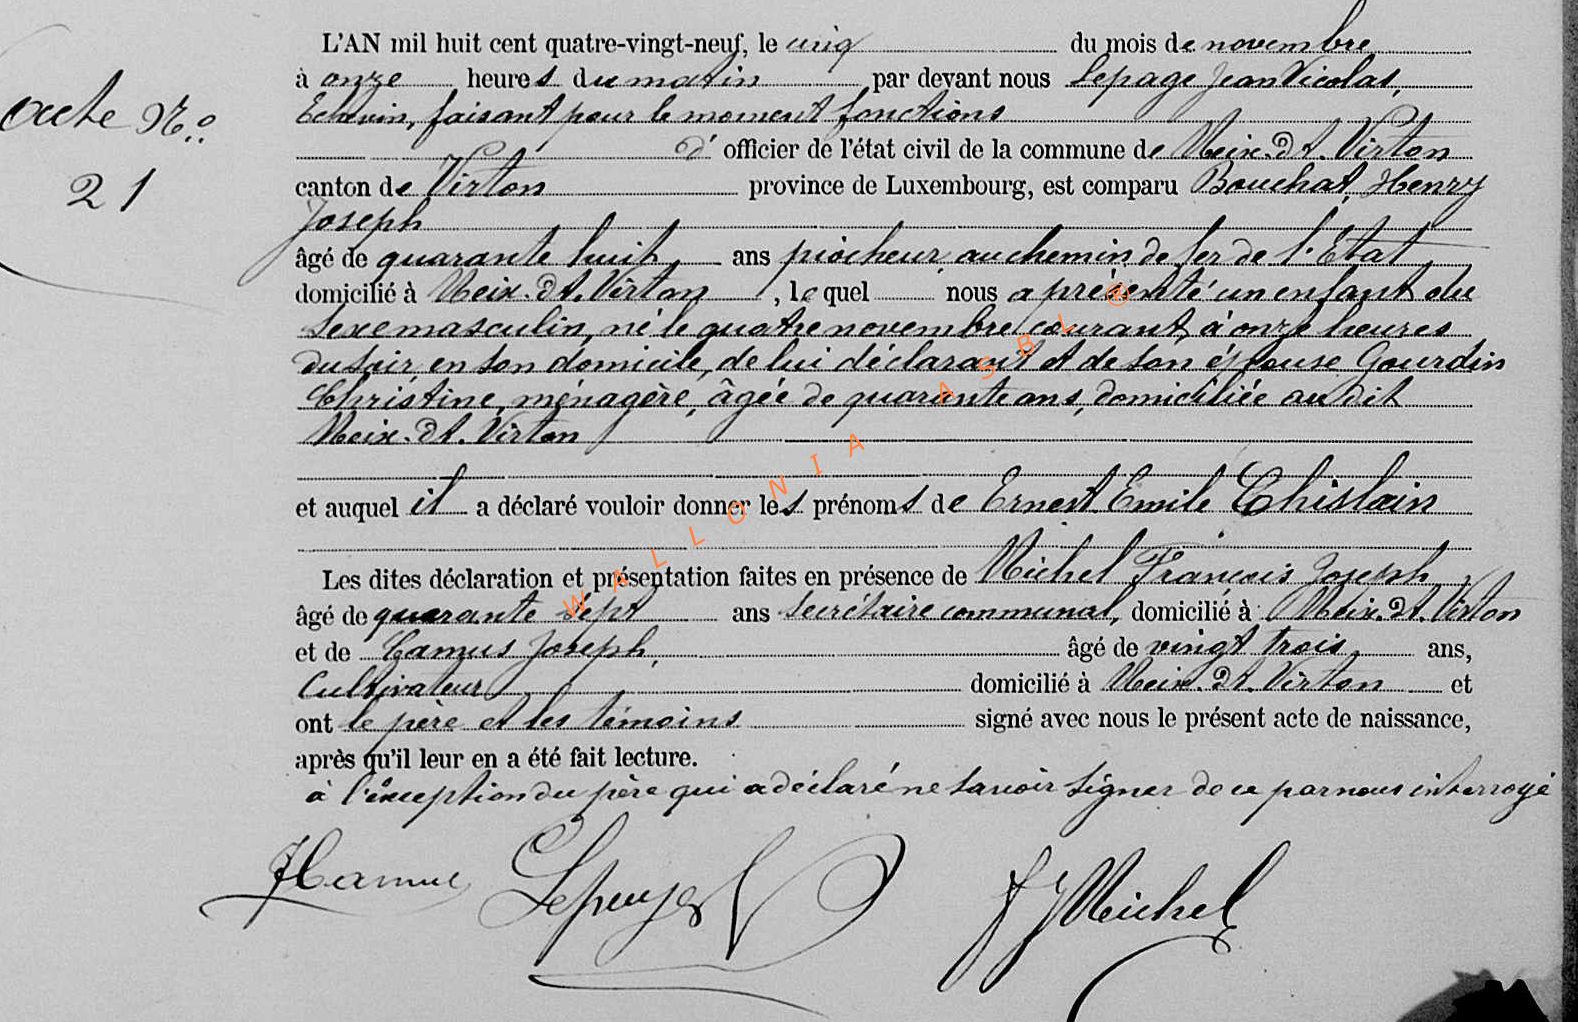 L'AN mil huit cent quatre-vingt-neuf, le cinq du mois de novembre
à onze heures du matin par devant nous Lepage Jean Nicolas,
Echevin, faisant pour le moment fonctions
acte No.
d' officier de l'état civil de la commune de Meix-dt-Virton
21
canton de Virton province de Luxembourg, est comparu Bouchat, Henry
Joseph
âgé de quarante huit ans piocheur au chemin de fer de l'Etat
domicilié à Meix-dt-Virton, lequel nous a présenté un enfant du
sexe masculin, né le quatre novembre courant, à onze heures
du soir, en son domicile, de lui déclarant et de son épouse Gourdin
Christine, ménagère, âgée de quarante ans, domiciliée audit
Meix-dt-Virton
et auquel il a déclaré vouloir donner les prénoms de Ernest Emile Ghislain
Les dites déclaration et présentation faites en présence de Michel François Joseph
âgé de quarante sept ans secrétaire communal, domicilié à Meix-dt-Virton
et de Camus Joseph, âgé de vingt trois ans,
Cultivateur domicilié à Meix-dt-Virton et
ont le père et les témoins signé avec nous le présent acte de naissance,
après qu'il leur en a été fait lecture.
à l'exception du père qui a déclaré ne savoir signer de ce par nous interrogé
JCamus Lepage FJMichel
WALLONIA ASBL ®